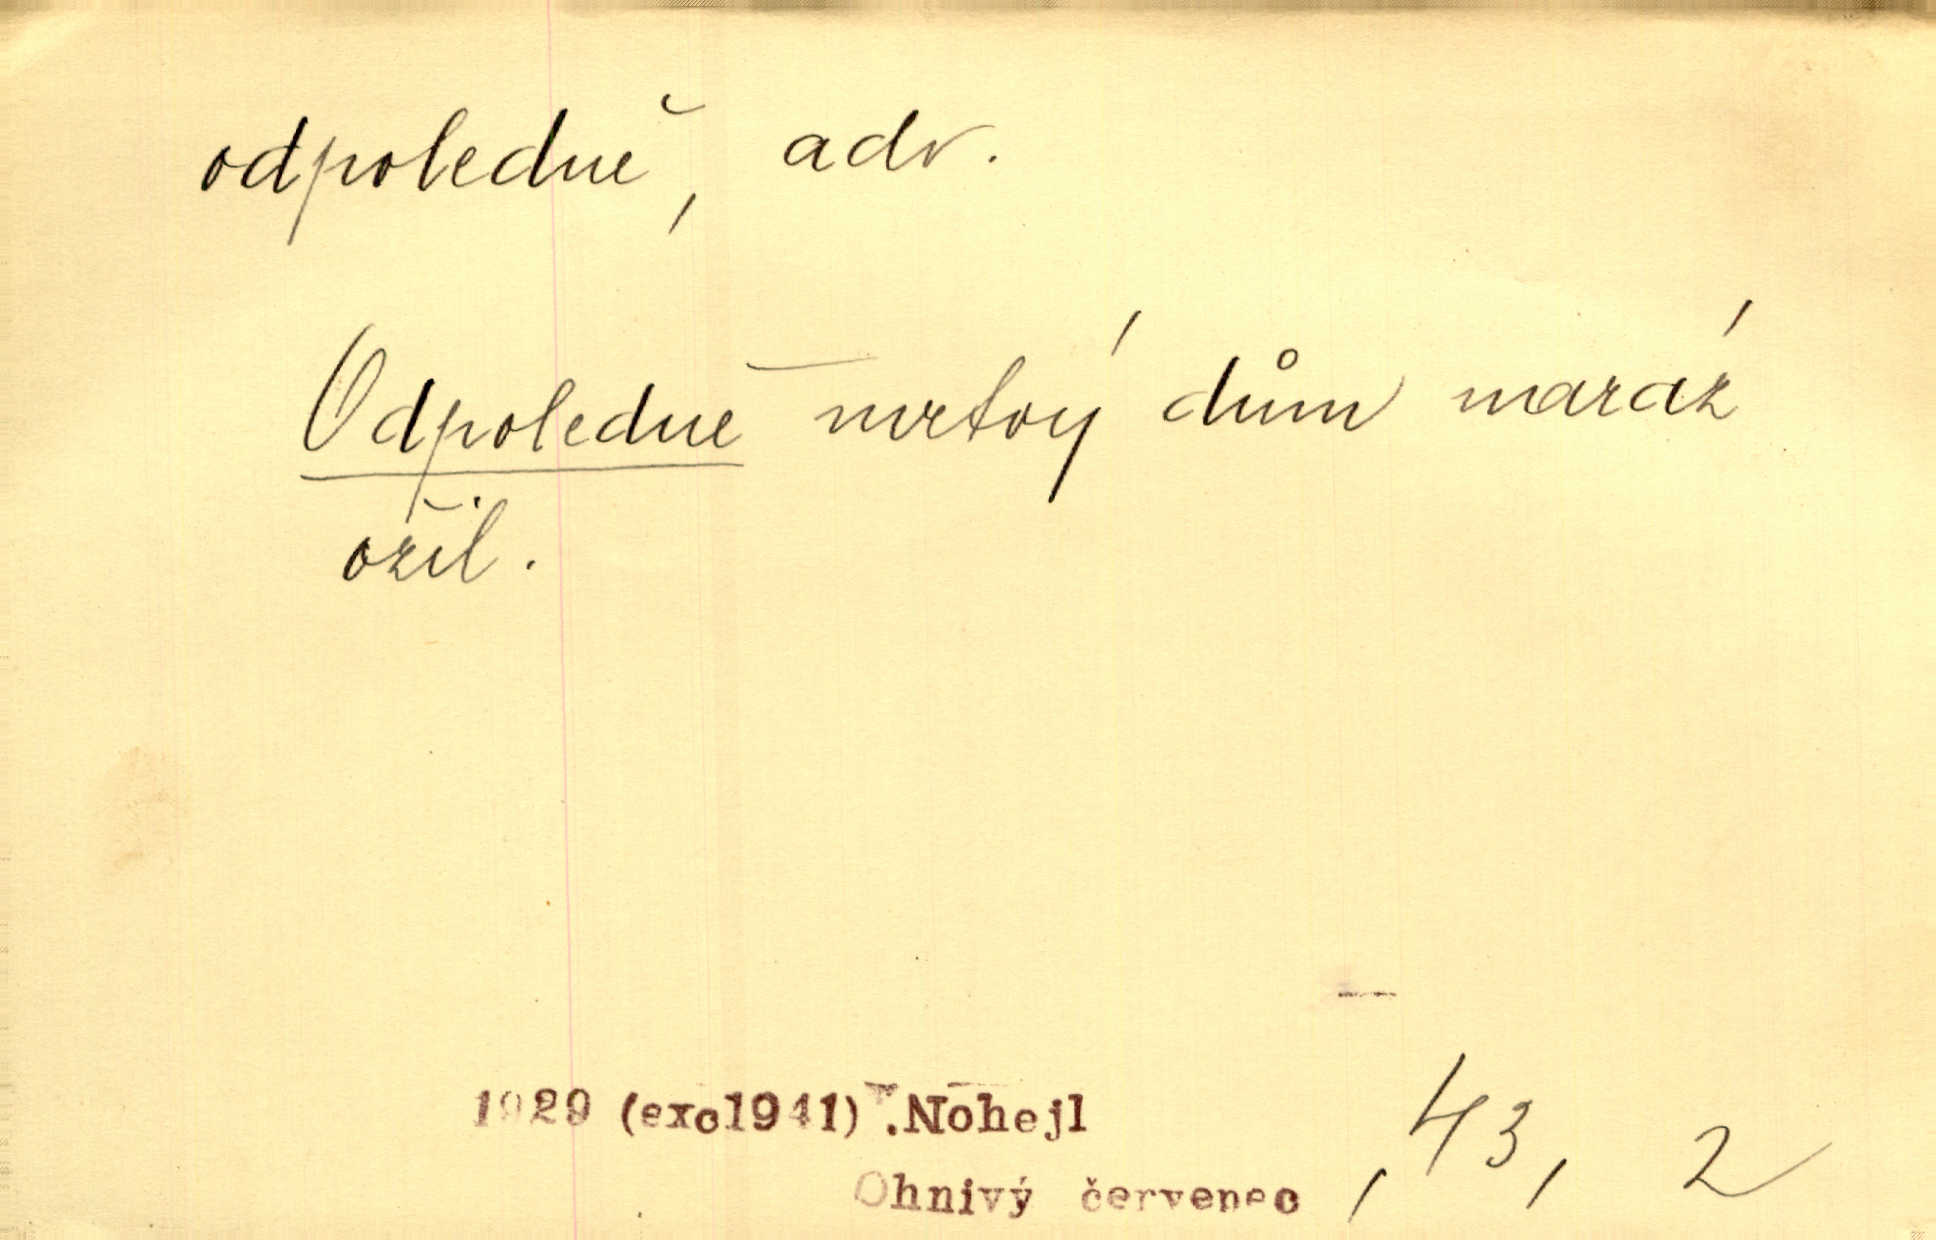 odpoledně, adv.
Odpoledne mrtvý dům maráz
ožil.
1929 (exc1941) .Nohejl
Ohnivý červenec , 43, 2